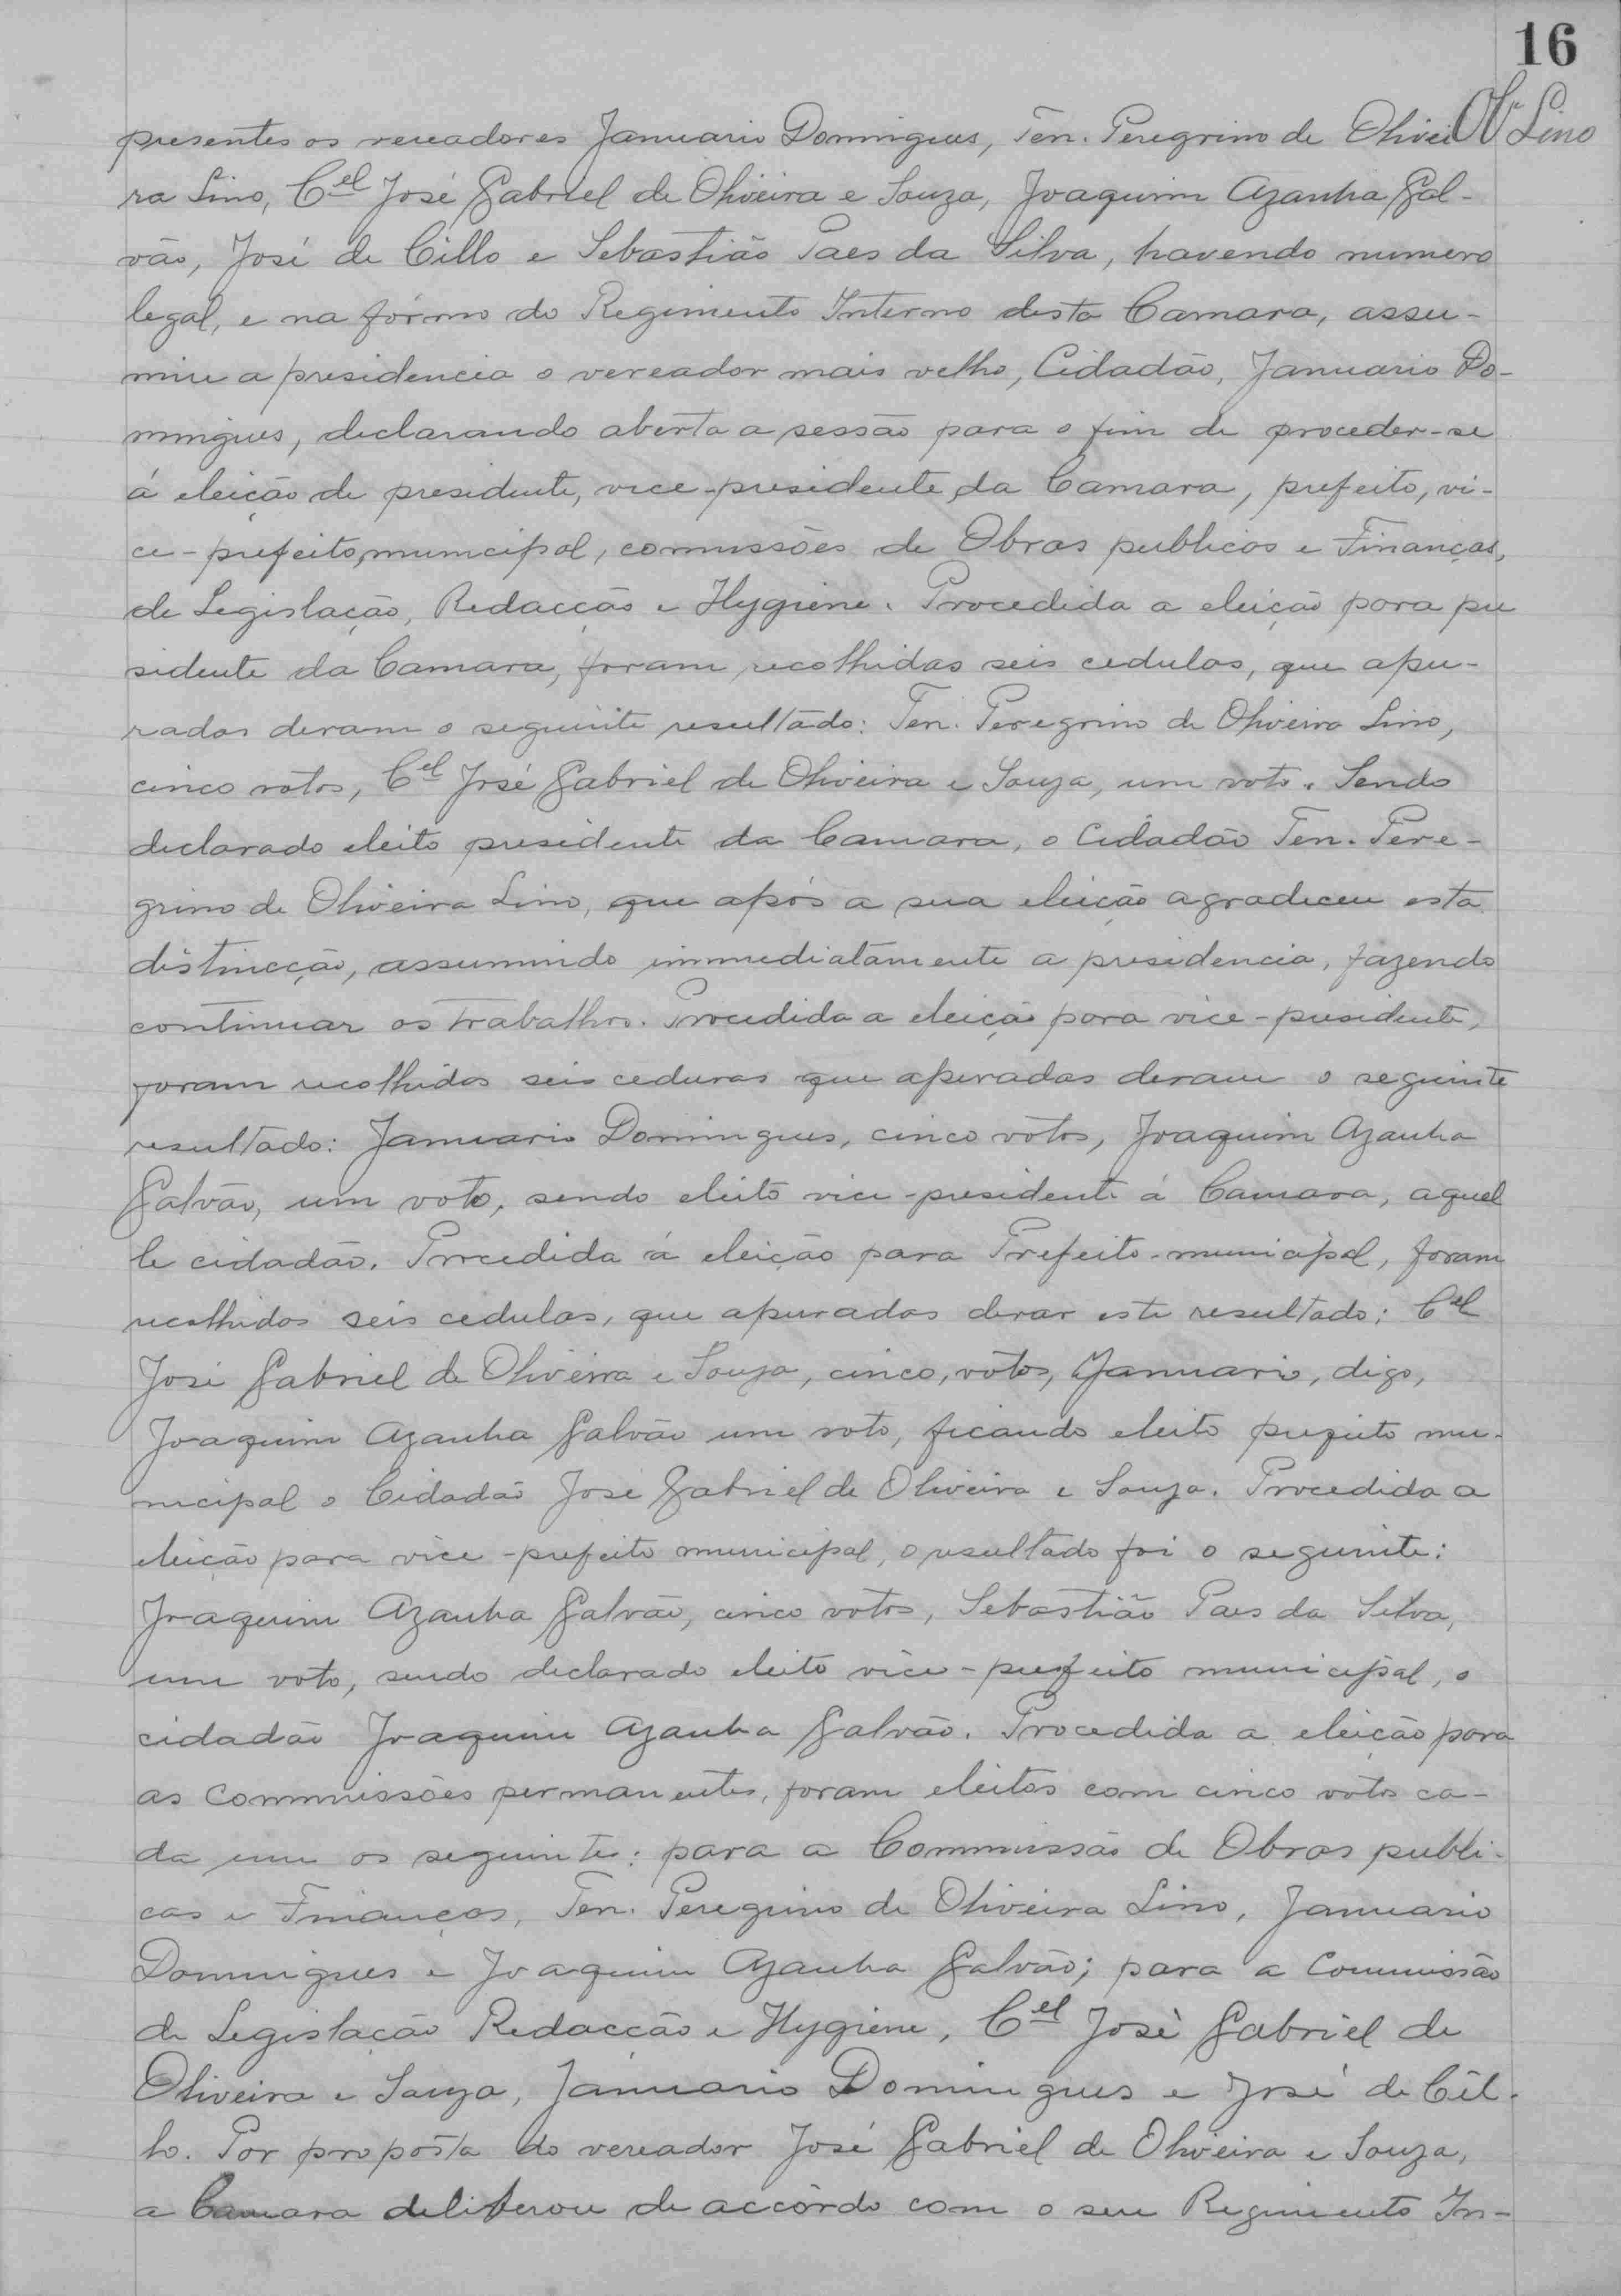 16
Ol. Lino
presentes os vereadores Januario Domingues, Ten. Peregrino de Olivei
ra Lino, Cel José Gabriel de Oliveira e Souza, Joaquim Azanha Gal-
vão, José de Cillo e Sebastião Paes da Silva, havendo numero
legal, e na fórma do Regimento Interno desta Camara, assu-
miu a presidencia o vereador mais velho, Cidadão, Januario Do-
mingues, declarando aberta a sessão para o fim de proceder-se
á eleição de presidente, vice-presidente da Camara, prefeito, vi-
ce-prefeito, municipal, comissões de Obras publicas e Finanças,
de Legislação, Redacção e Hygiene. Procedida a eleição para pre
sidente da Camara, foram recolhidas seis cedulas, que apu-
radas deram o seguinte resultado: Ten. Peregrino de Oliveira Lino,
cinco votos, Cel José Gabriel de Oliveira e Souza, um voto. Sendo
declarado eleito presidente da Camara, o Cidadão Ten. Pere-
grino de Oliveira Lino, que após a sua eleição agradeceu esta
distincção, assumindo immediatamente a presidencia, fazendo
continuar os trabalhos. Procedida a eleição para vice-presidente,
foram recolhidas seis ceduras que apuradas deram o seguinte
resultado: Januario Domingues, cinco votos, Joaquim Azanha
Galvão, um voto, sendo eleito vice-presidente á Camara, aquel
le cidadão. Procedida á eleição para Prefeito-municipal, foram
recolhidos seis cedulas, que apuradas derar este resultado: Cel
José Gabriel de Oliveira e Souza, cinco, votos, Januario, digo,
Joaquim Azanha Galvão um voto, ficando eleito prefeito mu-
nicipal o Cidadão José Gabriel de Oliveira e Souza. Procedida a
eleição para vice-prefeito municipal, o resultado foi o seguinte:
Joaquim Azanha Galvão, cinco votos, Sebastião Paes da Silva,
um voto, sendo declarado eleito vice-prefeito municipal, o
cidadão Joaquim Azanha Galvão. Procedida a eleição para
as Commissões permanentes, foram eleitos com cinco votos ca-
da um os seguintes: para a Commissão de Obras publi-
cas e Finanças, Ten. Peregrino de Oliveira Lino, Januario
Domingues e Joaquim Azanha Galvão; para a Commissão
de Legislação Redacção e Hygiene, Cel José Gabriel de
Oliveira e Souza, Januario Domingues e José de Cil-
lo. Por proposta do vereador José Gabriel de Oliveira e Souza,
a Camara deliberou de accôrdo com o seu Regimento In-